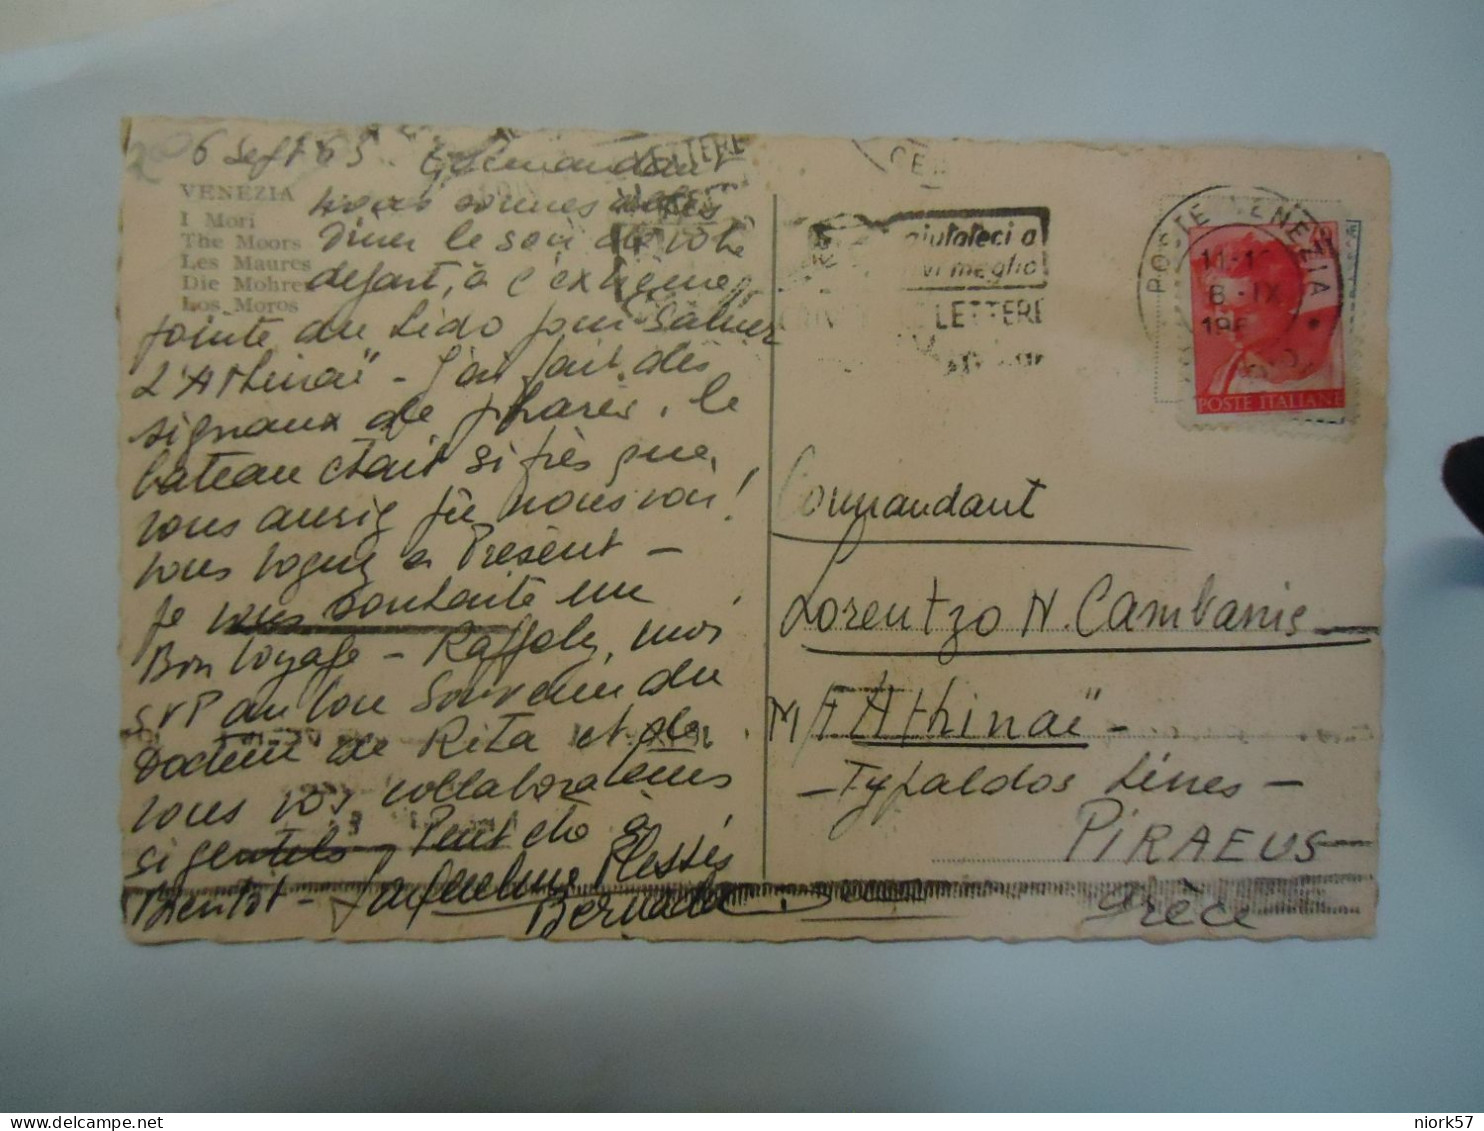 6 Sept 65
VENEZIA
I Mori
The Moors
Les Maures
Die Mohre
Los Moros
nous sommes allés
diner le soir de votre
départ, à l'extreme
pointe du Lido pour saluer
L'Athinaï" - J'ai fait des
signaux de phares, le
bateau etait si près que
vous auriez pu nous voir!
vous voguez a Présent -
Je vous souhaite un
Bon Voyage -
SVP au bon Souvenir du
Docteur de Rita et de
tous vos collaborateurs
si gentils - Peut etre à
Bientot - Jacqueline Plessis
POSTE VENEZIA
8 - IX
196
POSTE ITALIANE
aiutateci a
vi meglio
LETTERE
Commandant
Lorentzo N. Cambanis
M/F "Athinaï" -
- Typaldos Lines -
PIRAEUS
Grèce
niork57